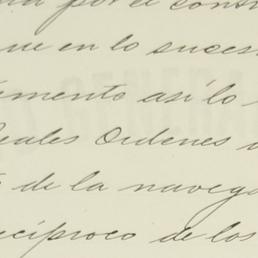 por el
que en lo suces
emento así lo
eales Ordenes
de la navega
ecíproco de los